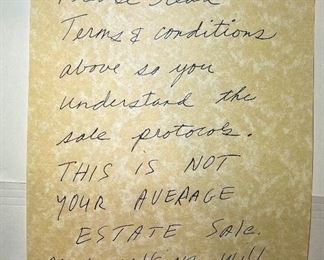 Please read
Terms & conditions
above so you
understand the
sale protocols.
THIS IS NOT
YOUR AVERAGE
ESTATE Sale.
will